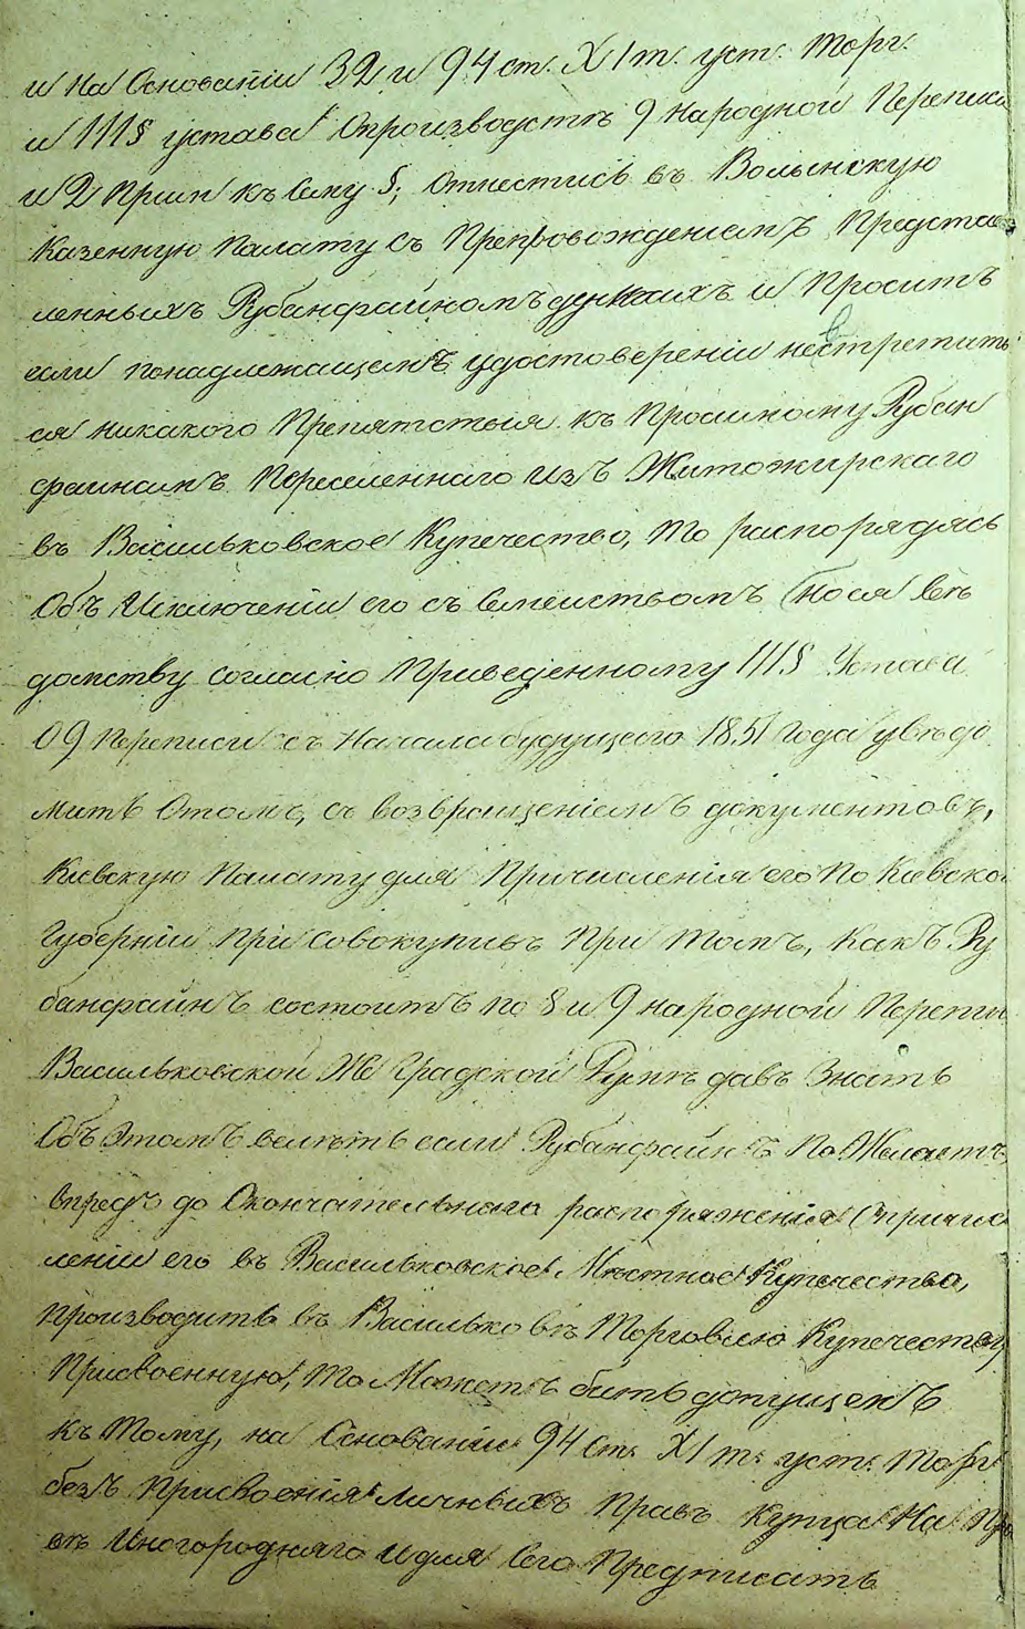 и на Основаніи 32 и 94 ст. XI т. уст. Торг.
и 111 § устава Опроизводствѣ 9 народной Переписи
и 2 Прим къ Сему §; Отнестись въ Волынскую
Казенную Палату съ Препровожденіемъ Представ
ленныхъ Рубанфайномъ деньгахъ и Просить
если понадлежащемъ удостовереніи невстретить
ся никакого Препятствія къ Прошиному Рубан
файномъ Переселенного изъ Житомирскаго
въ Васильковское Купечество, То распорядясь
Объ Исключеніи его съ Семействомъ
домству согласно Приведенному 111 § Устава
О 9 Переписи съ Начала будущего 1851 Года увѣдо
мить Отомъ, съ возвращеніемъ документовъ,
Кіевскую Палату для Причисленія его По Кіевской
Губерніи Присовокупивъ При томъ, Какъ Ру
банфайнъ состоитъ по 8 и 9 народной Переписи
Васильковской Же Градской Думѣ давъ Знать
Объ Этомъ велѣть если Рубанфайнъ По Желаетъ,
впредь до Окончательного распоряженія Опричис
леніи его въ Васильковское Местное Купечество,
Производить въ Васильковѣ Торговлю Купечеству
Присвоенную, То Можетъ быть допущенъ
къ Тому, на Основаніи 94 ст. XI т. уст. Торг
безъ Присвоенія Личныхъ Правъ Купца На Пра
вѣ Иногородняго и для Сего Предписать